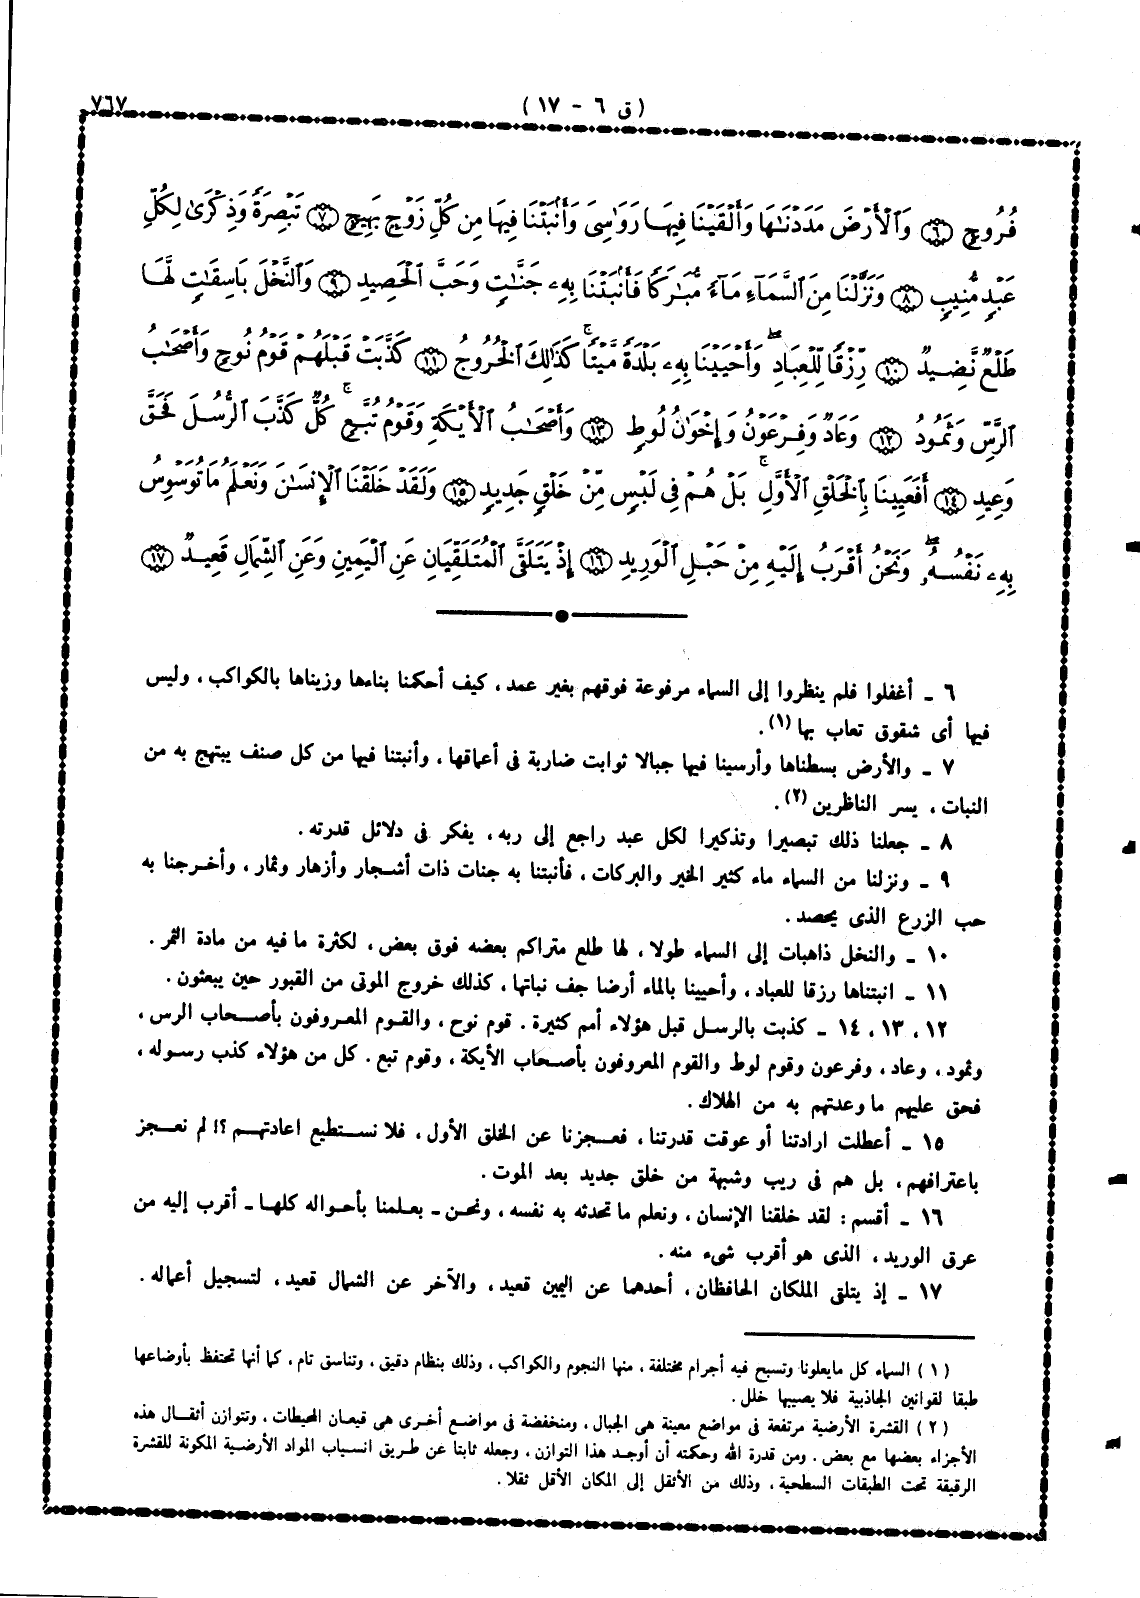 ٧٦٧
( ق ٦ - ١٧ )
فُرُوجٍ ٦ وَٱلْأَرْضَ مَدَدْنَٰهَا وَأَلْقَيْنَا فِيهَا رَوَٰسِىَ وَأَنۢبَتْنَا فِيهَا مِن كُلِّ زَوْجٍۭ بَهِيجٍ ٧ تَبْصِرَةً وَذِكْرَىٰ لِكُلِّ
عَبْدٍ مُّنِيبٍ ٨ وَنَزَّلْنَا مِنَ ٱلسَّمَآءِ مَآءً مُّبَٰرَكًا فَأَنۢبَتْنَا بِهِۦ جَنَّٰتٍ وَحَبَّ ٱلْحَصِيدِ ٩ وَٱلنَّخْلَ بَاسِقَٰتٍ لَّهَا
طَلْعٌ نَّضِيدٌ ١٠ رِّزْقًا لِّلْعِبَادِ ۖ وَأَحْيَيْنَا بِهِۦ بَلْدَةً مَّيْتًا ۚ كَذَٰلِكَ ٱلْخُرُوجُ ١١ كَذَّبَتْ قَبْلَهُمْ قَوْمُ نُوحٍ وَأَصْحَٰبُ
ٱلرَّسِّ وَثَمُودُ ١٢ وَعَادٌ وَفِرْعَوْنُ وَإِخْوَٰنُ لُوطٍ ١٣ وَأَصْحَٰبُ ٱلْأَيْكَةِ وَقَوْمُ تُبَّعٍ ۚ كُلٌّ كَذَّبَ ٱلرُّسُلَ فَحَقَّ
وَعِيدِ ١٤ أَفَعَيِينَا بِٱلْخَلْقِ ٱلْأَوَّلِ ۚ بَلْ هُمْ فِى لَبْسٍ مِّنْ خَلْقٍ جَدِيدٍ ١٥ وَلَقَدْ خَلَقْنَا ٱلْإِنسَٰنَ وَنَعْلَمُ مَا تُوَسْوِسُ
بِهِۦ نَفْسُهُۥ ۖ وَنَحْنُ أَقْرَبُ إِلَيْهِ مِنْ حَبْلِ ٱلْوَرِيدِ ١٦ إِذْ يَتَلَقَّى ٱلْمُتَلَقِّيَانِ عَنِ ٱلْيَمِينِ وَعَنِ ٱلشِّمَالِ قَعِيدٌ ١٧
٦ ـ أغفلوا فلم ينظروا إلى السماء مرفوعة فوقهم بغير عمد ، كيف أحكمنا بناءها وزيناها بالكواكب ، وليس
فيها أى شقوق تعاب بها (١) .
٧ ـ والأرض بسطناها وأرسينا فيها جبالا ثوابت ضاربة فى أعماقها ، وأنبتنا فيها من كل صنف يبتهج به من
النبات ، يسر الناظرين (٢) .
٨ ـ جعلنا ذلك تبصيرا وتذكيرا لكل عبد راجع إلى ربه ، يفكر فى دلائل قدرته .
٩ ـ ونزلنا من السماء ماء كثير الخير والبركات ، فأنبتنا به جنات ذات أشجار وأزهار وثمار ، وأخرجنا به
حب الزرع الذى يحصد .
١٠ ـ والنخل ذاهبات إلى السماء طولا ، لها طلع متراكم بعضه فوق بعض ، لكثرة ما فيه من مادة الثمر .
١١ ـ انبتناها رزقا للعباد ، وأحيينا بالماء أرضا جف نباتها ، كذلك خروج الموتى من القبور حين يبعثون .
١٢ ، ١٣ ، ١٤ ـ كذبت بالرسل قبل هؤلاء أمم كثيرة . قوم نوح ، والقوم المعروفون بأصحاب الرس ،
وثمود ، وعاد ، وفرعون وقوم لوط والقوم المعروفون بأصحاب الأيكة ، وقوم تبع . كل من هؤلاء كذب رسوله ،
فحق عليهم ما وعدتهم به من الهلاك .
١٥ ـ أعطلت ارادتنا أو عوقت قدرتنا ، فعجزنا عن الخلق الأول ، فلا نستطيع اعادتهم ؟! لم نعجز
باعترافهم ، بل هم فى ريب وشبهة من خلق جديد بعد الموت .
١٦ ـ أقسم : لقد خلقنا الإنسان ، ونعلم ما تحدثه به نفسه ، ونحن ـ بعلمنا بأحواله كلها ـ أقرب إليه من
عرق الوريد ، الذى هو أقرب شىء منه .
١٧ ـ إذ يتلقى الملكان الحافظان ، أحدهما عن اليمين قعيد ، والآخر عن الشمال قعيد ، لتسجيل أعماله .
( ١ ) السماء كل مايعلونا وتسبح فيه أجرام مختلفة ، منها النجوم والكواكب ، وذلك بنظام دقيق ، وتناسق تام ، كما أنها تحتفظ بأوضاعها
طبقا لقوانين الجاذبية فلا يصيبها خلل .
( ٢ ) القشرة الأرضية مرتفعة فى مواضع معينة هى الجبال ، ومنخفضة فى مواضع أخرى هى قيعان المحيطات ، وتتوازن أثقال هذه
الأجزاء بعضها مع بعض . ومن قدرة الله وحكمته أن أوجد هذا التوازن ، وجعله ثابتا عن طريق انسياب المواد الأرضية المكونة للقشرة
الرقيقة تحت الطبقات السطحية ، وذلك من الأثقل إلى المكان الأقل ثقلا .